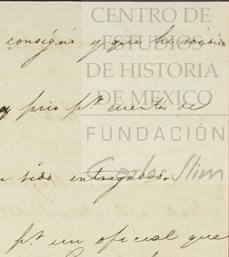 CENTRO DE
ESTUDIOS
DE HISTORIA
DE MEXICO
FUNDACIÓN
Carlos Slim
consigno y que ha
pico pr. cuenta de
sido entregados.
pr. un oficial que